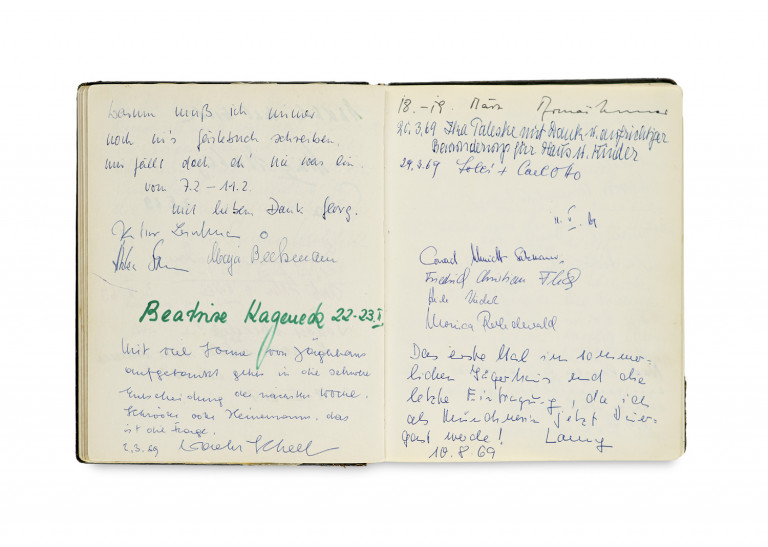 warum muß ich immer
noch in's Gästebuch schreiben.
mir fällt doch eh' nie was ein.
vom 7.2 – 11.2.
mit lieben Dank Georg.
Beatrise Hageneck 22-23.
Mit viel Sonne vom Jägerhaus
aufgetankt gehen in die schwere
Entscheidung der nächsten Woche.
Schröder oder Heinemann, das
ist die Frage.
2.3.69
18. – 19. März
20.3.69 Ilka Taleske mit Dank u. aufrichtiger
Bewunderung für Haus u. Kinder
29.3.69 + Carl Otto
11. V. 69
Conrad
Friedrich Christian
Monica
Das erste Mal im sommer-
lichen Jägerhaus und die
letzte Eintragung, da ich
als Münchnerin jetzt Dauer-
gast werde!
10.8.69